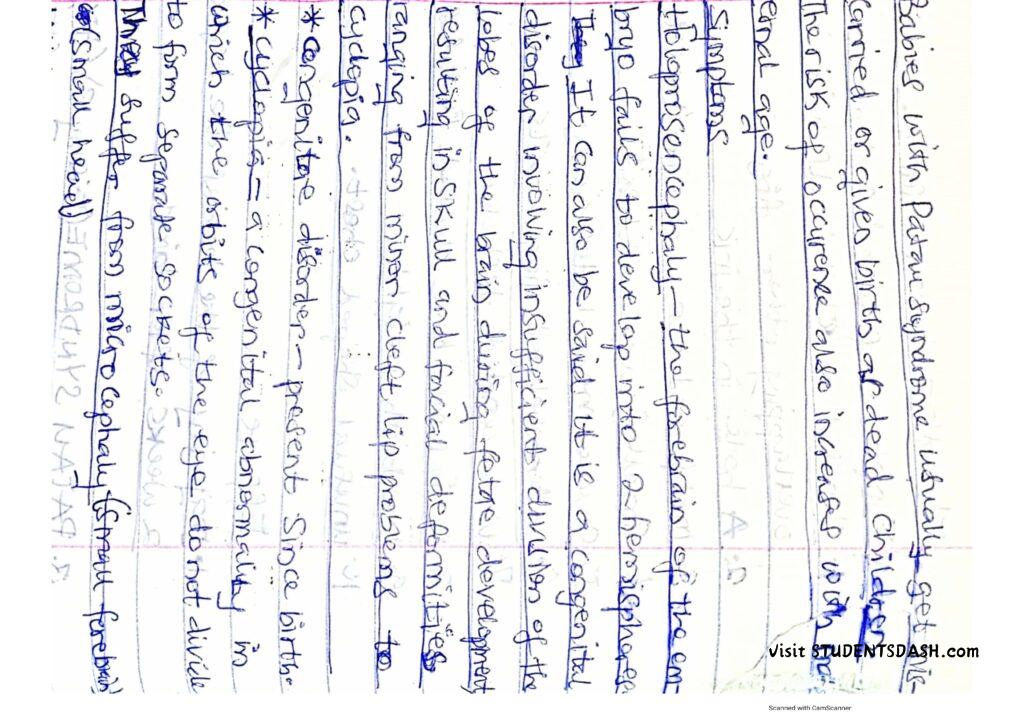 Babies with Patau Syndrome usually get mis-
carried or given birth as dead children
The risk of occurence also increases with ma
ernal age.
Symptoms
Holoprosencephaly - the forebrain of the em-
bryo fails to develop into 2 hemispheres
It can also be said it is a congenital
disorder involving insufficient division of the
lobes of the brain during fetal development
resulting in skull and facial deformities
anging from minor cleft lip problems to
cyclopia.
* congenital disorder - present since birth.
* cyclopia = a congenital abnormality in
which the orbits of the eye do not divide
to form separate sockets.
suffer from microcephaly (small forebrain)
(small head)
Visit STUDENTSDASH.com
Scanned with CamScanner